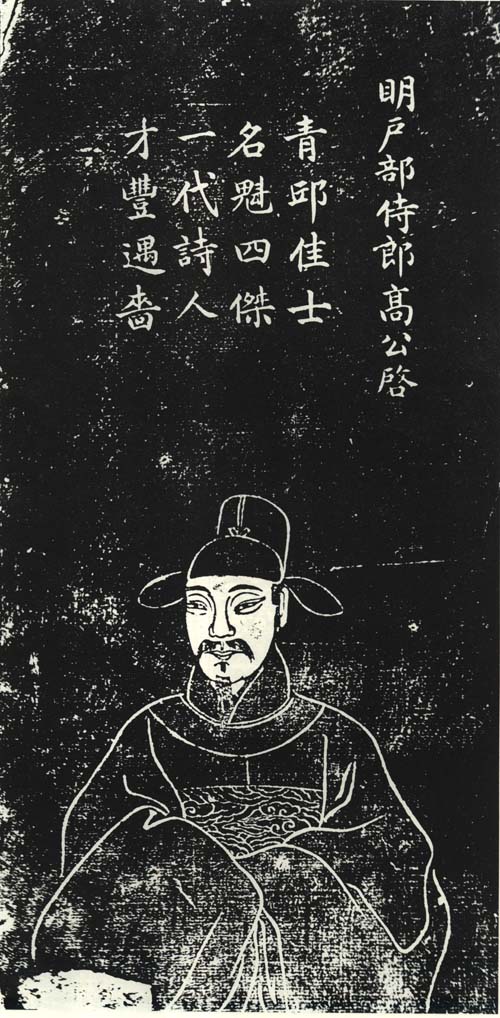 明戶部侍郎髙公啓
青邱佳士
名魁四傑
一代詩人
才豐遇嗇